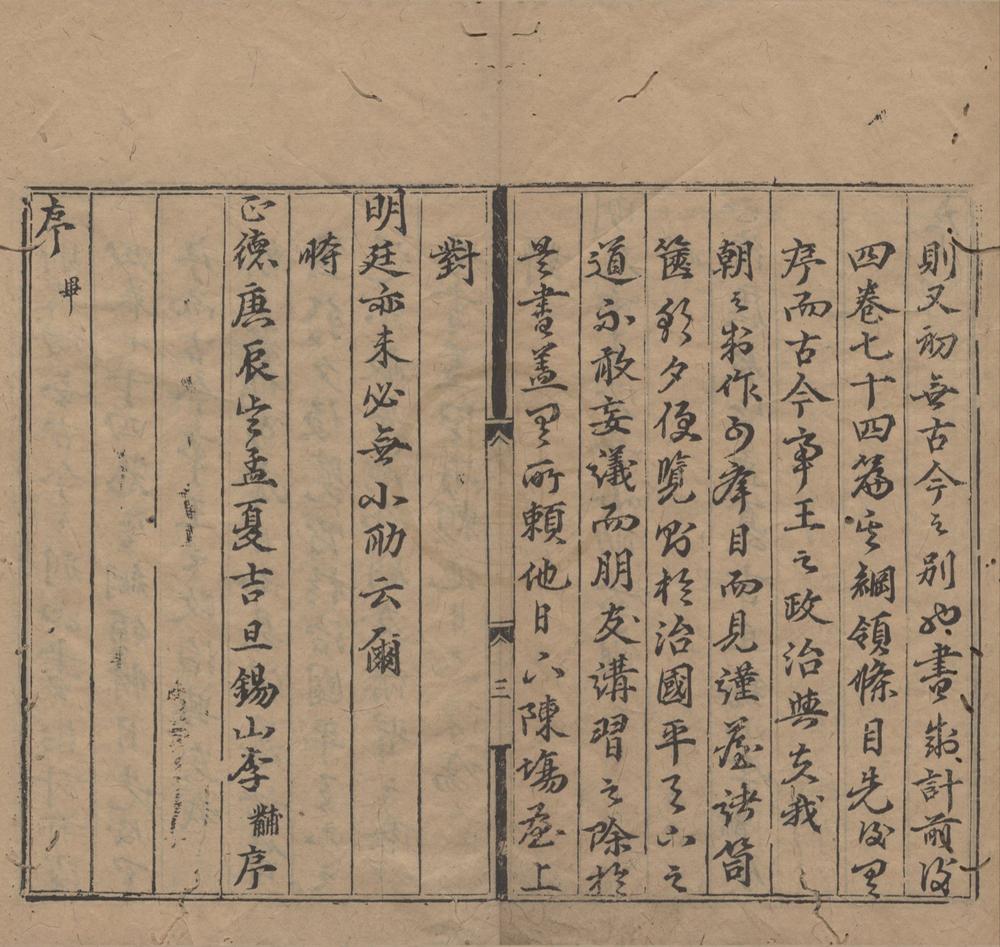 則又初無古今之別也書凡計前後
四卷七十四篇其綱領條目先後有
序而古今帝王之政治與夫我
朝之制作可舉目而見謹蔵諸笥
篋朝夕便覽對於治國平天下之
道不敢妄議而朋友講習之際於
是書蓋有所賴他日入陳場屋上
對
明廷亦未必無小助云爾
時
正德庚辰歲孟夏吉旦錫山李黼序
序
畢
三